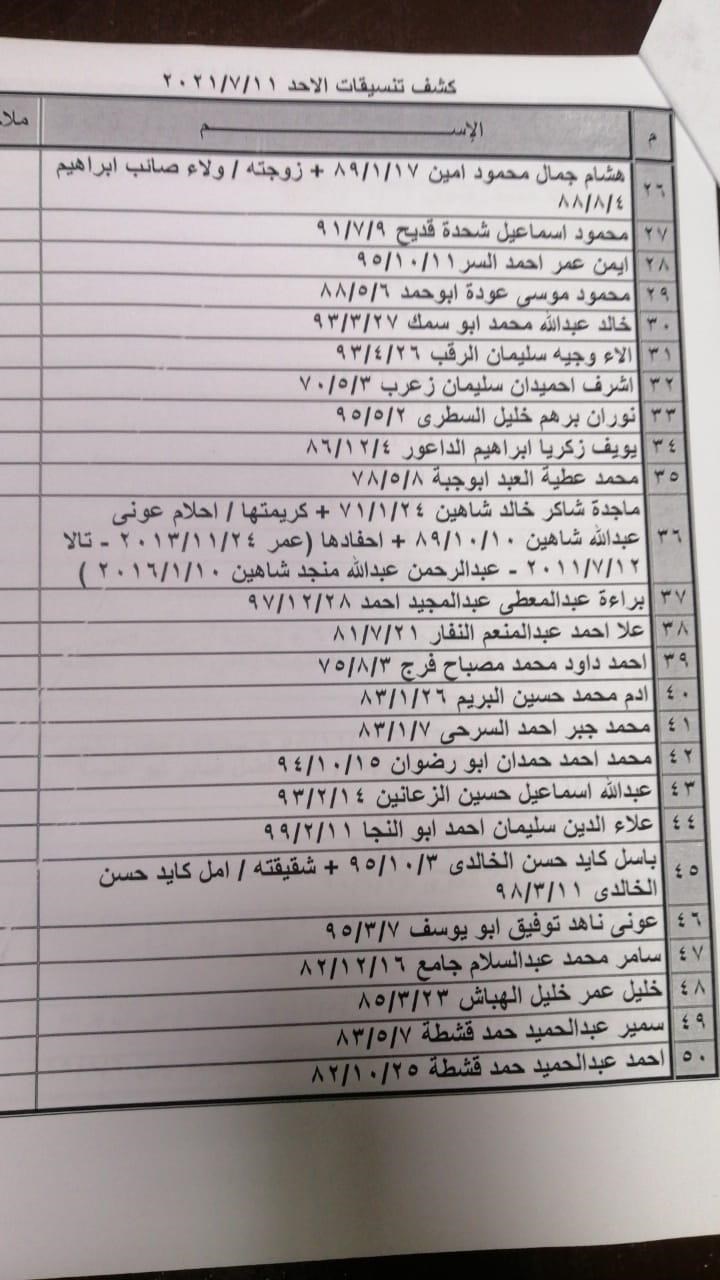 كشف تنسيقات الاحد ٢٠٢١/٧/١١
م الإســـــــم ملا
٢٦ هشام جمال محمود امين ٨٩/١/١٧ + زوجته / ولاء صائب ابراهيم
٨٨/٨/٤
٢٧ محمود اسماعيل شحدة قديح ٩١/٧/٩
٢٨ ايمن عمر احمد السر ٩٥/١٠/١١
٢٩ محمود موسى عودة ابوحمد ٨٨/٥/٦
٣٠ خالد عبدالله محمد ابو سمك ٩٣/٣/٢٧
٣١ الاء وجيه سليمان الرقب ٩٣/٤/٢٦
٣٢ اشرف احميدان سليمان زعرب ٧٠/٥/٣
٣٣ نوران برهم خليل السطرى ٩٥/٥/٢
٣٤ يويف زكريا ابراهيم الداعور ٨٦/١٢/٤
٣٥ محمد عطية العبد ابوجبة ٧٨/٥/٨
٣٦ ماجدة شاكر خالد شاهين ٧١/١/٢٤ + كريمتها / احلام عونى
عبدالله شاهين ٨٩/١٠/١٠ + احفادها (عمر ٢٠١٣/١١/٢٤ - تالا
٢٠١١/٧/١٢ - عبدالرحمن عبدالله منجد شاهين ٢٠١٦/١/١٠ )
٣٧ براءة عبدالمعطى عبدالمجيد احمد ٩٧/١٢/٢٨
٣٨ علا احمد عبدالمنعم النفار ٨١/٧/٢١
٣٩ احمد داود محمد مصباح فرج ٧٥/٨/٣
٤٠ ادم محمد حسين البريم ٨٣/١/٢٦
٤١ محمد جبر احمد السرحى ٨٣/١/٧
٤٢ محمد احمد حمدان ابو رضوان ٩٤/١٠/١٥
٤٣ عبدالله اسماعيل حسين الزعانين ٩٣/٢/١٤
٤٤ علاء الدين سليمان احمد ابو النجا ٩٩/٢/١١
٤٥ باسل كايد حسن الخالدى ٩٥/١٠/٣ + شقيقته / امل كايد حسن
الخالدى ٩٨/٣/١١
٤٦ عونى ناهد توفيق ابو يوسف ٩٥/٣/٧
٤٧ سامر محمد عبدالسلام جامع ٨٢/١٢/١٦
٤٨ خليل عمر خليل الهباش ٨٥/٣/٢٣
٤٩ سمير عبدالحميد حمد قشطة ٨٣/٥/٧
٥٠ احمد عبدالحميد حمد قشطة ٨٢/١٠/٢٥